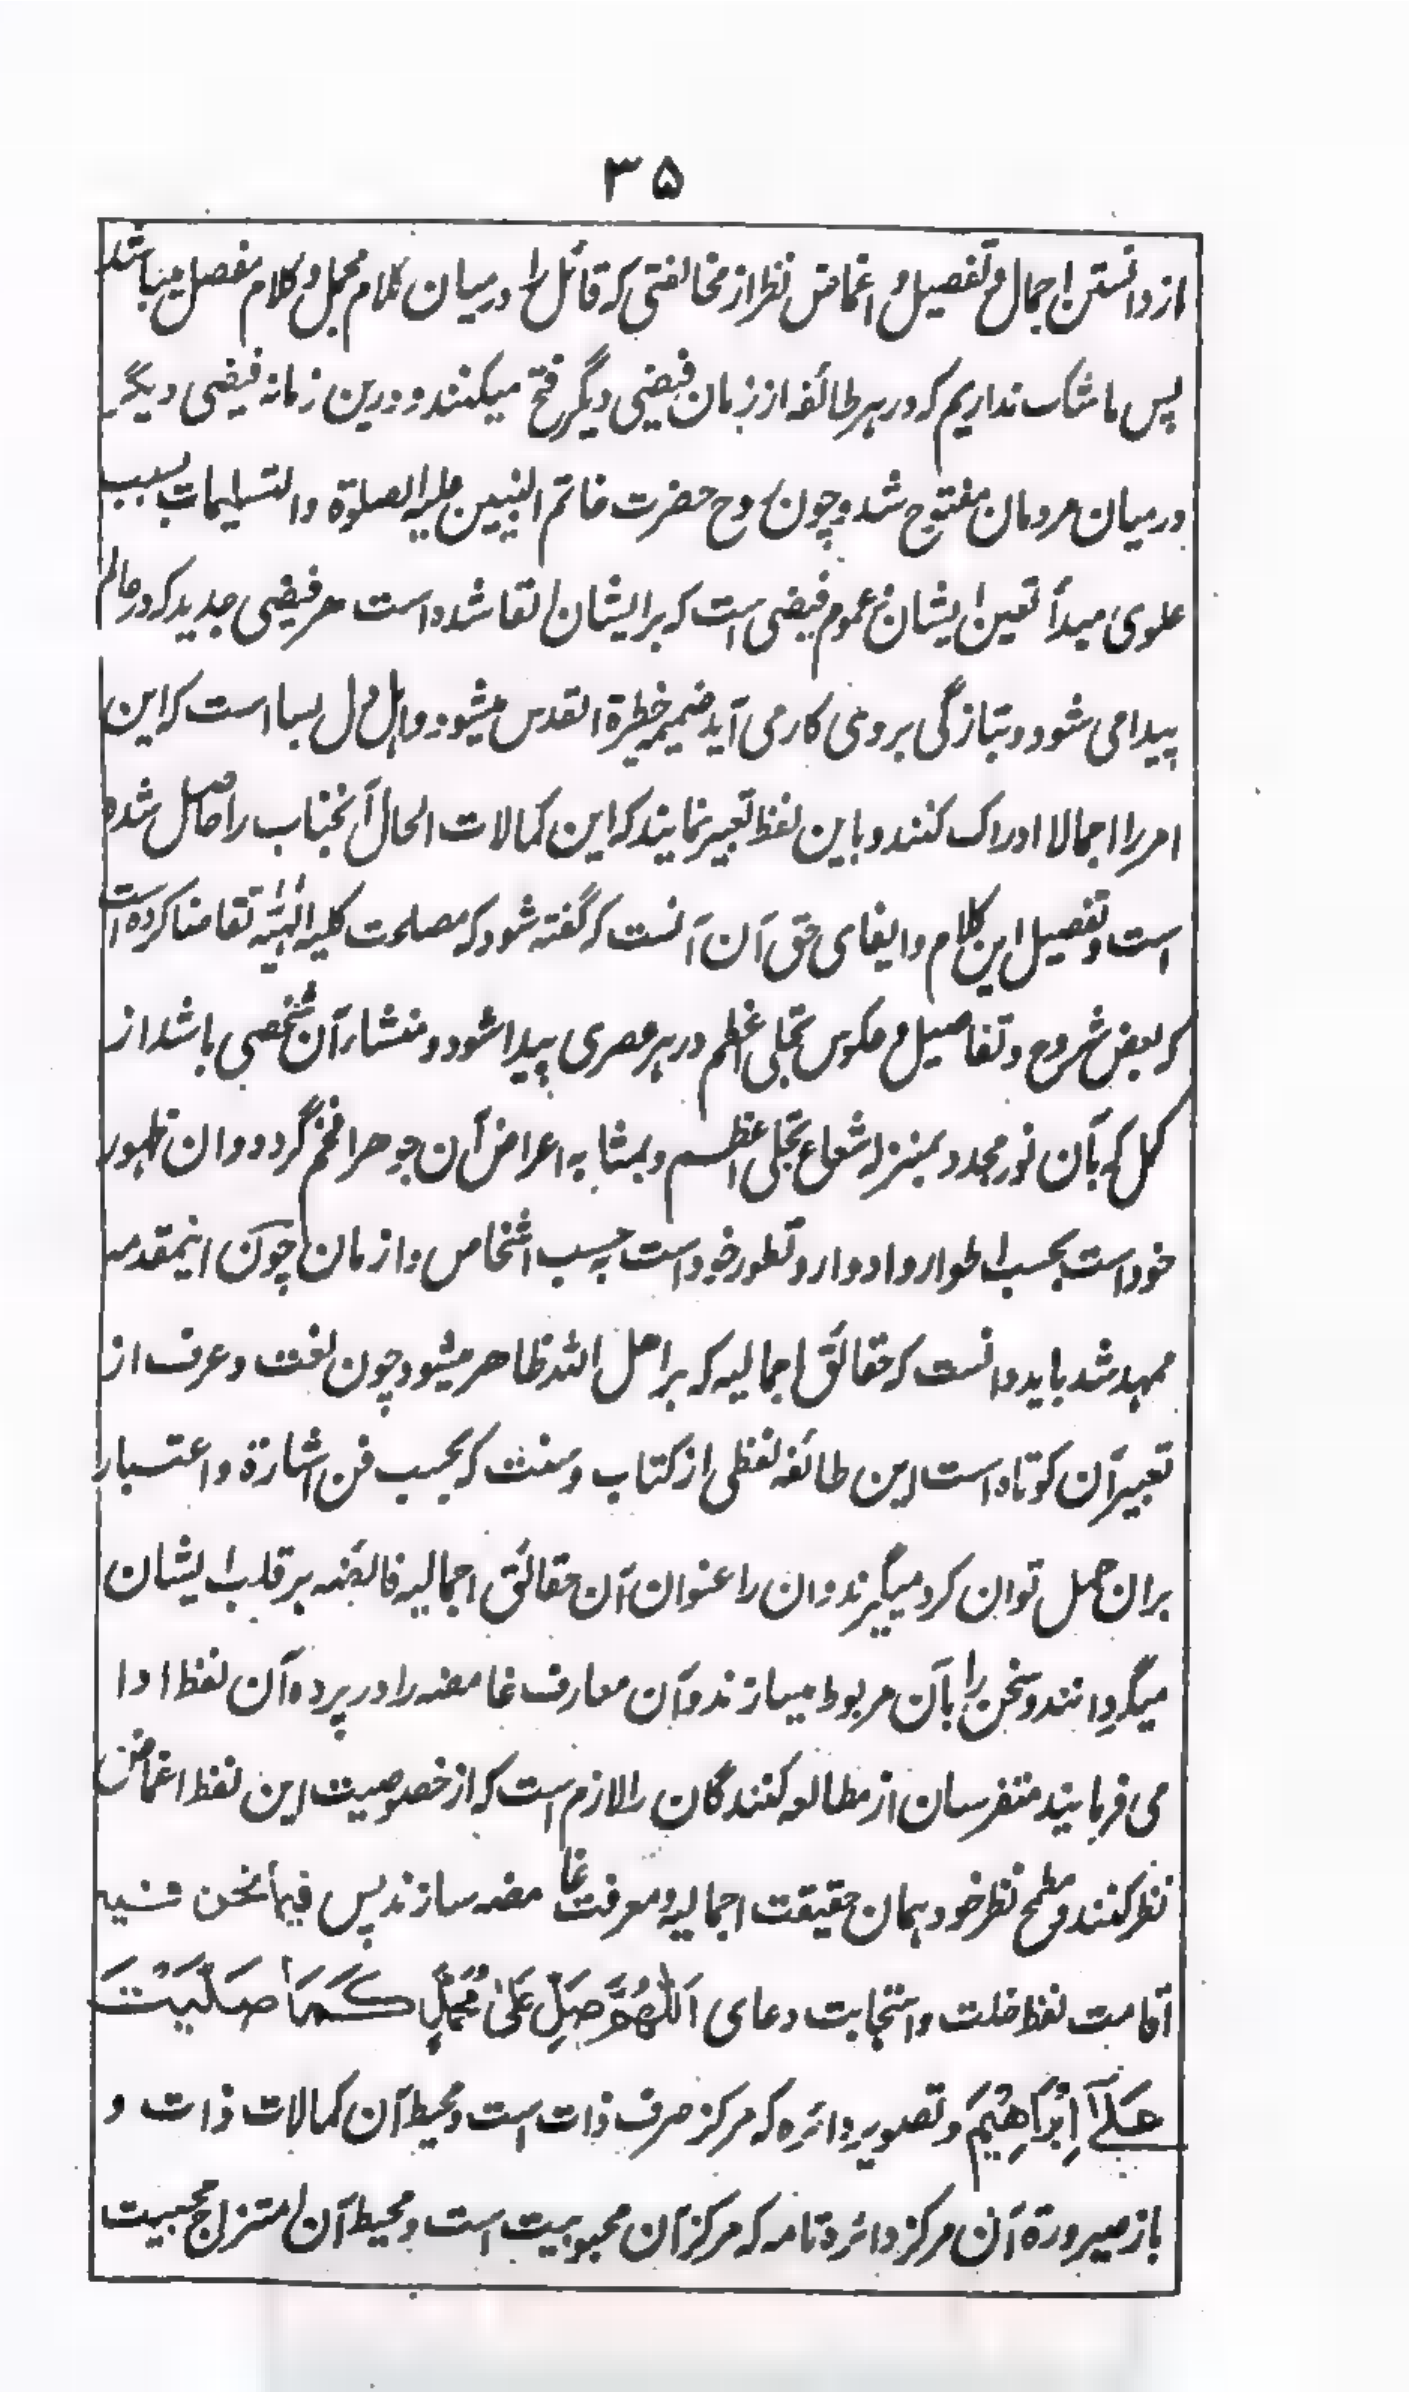 ۳۵
از دانستن اجمال و تفصیل و اغماض نظر از مخالفتی که قائل را درمیان کلام مجمل و کلام مفصل میباشد
پس ما شک نداریم که در هر طائفه از زمان فیضی دیگر فتح میکنند و درین زمانه فیضی دیگر
درمیان مردمان مفتوح شد و چون روح حضرت خاتم النبیین علیه الصلوة والتسلیمات بسبب
علوی مبدأ تعین ایشان و عموم فیضی است که بر ایشان القا شده است هر فیضی جدید که در عالم
پیدا می شود و بتازگی بروی کار می آید ضمیمه خطرة القدس میشود و اہل دل بسا است که این
امر را اجمالا ادراک کنند و باین لفظ تعبیر نمایند که این کمالات الحال آنجناب را حاصل شده
است و تفصیل این کلام و ایفای حق آن آنست که گفته شود که مصلحت کلیه الٰہیّه تقاضا کرده است
که بعض شروح و تفاصیل و عکوس تجلی اعظم در ہر عصری پیدا شود و منشاء آن شخصی باشد از
کمل که بآن نور مجدد بمنزله شعاع تجلی اعظم و بمثابه اعراض آن جوهر افخم گردد و ان ظہور
خود است بحسب اطوار و ادوار و تطور خود است بحسب اشخاص و ازمان چون اینمقدمه
ممہد شد باید دانست که حقائق اجمالیه که بر اهل الله ظاهر میشود چون لغت و عرف از
تعبیر آن کوتاه است این طائفه لفظی از کتاب و سنت که بحسب فن اشارة و اعتبار
بران حمل توان کرد میگیرند و ان را عنوان آن حقائق اجمالیه فائضه بر قلب ایشان
میگردانند و سخن را بآن مربوط میسازند و آن معارف غامضه را در پرده آن لفظ ادا
می فرمایند متفرسان از مطالعه کنندگان را لازم است که از خصوصیت این لفظ اغماض
نظر کنند و مطمح نظر خود ہمان حقیقت اجمالیه و معرفت غامضه سازند پس فیما نحن فیه
اقامت لفظ خلت و استجابت دعای اَللّٰهُمَّ صَلِّ عَلٰی مُحَمَّدٍ کَمَا صَلَّیْتَ
عَلٰٓی اِبْرَاهِیْمَ و تصویر دائره که مرکز صرف ذات است و محیط آن کمالات ذات و
باز صیرورة آن مرکز دائره تامه که مرکز آن محبوبیت است و محیط آن امتزاج محبیت